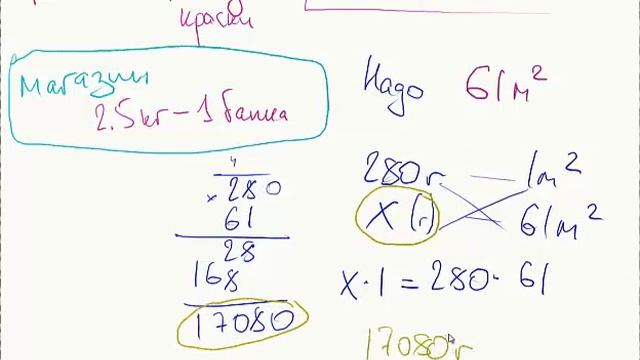 краски
Магазин
2.5кг – 1 банка
Надо 61м²
4
× 280
61
28
168
17080
280г — 1м²
X (г) 61м²
X · 1 = 280 · 61
17080г